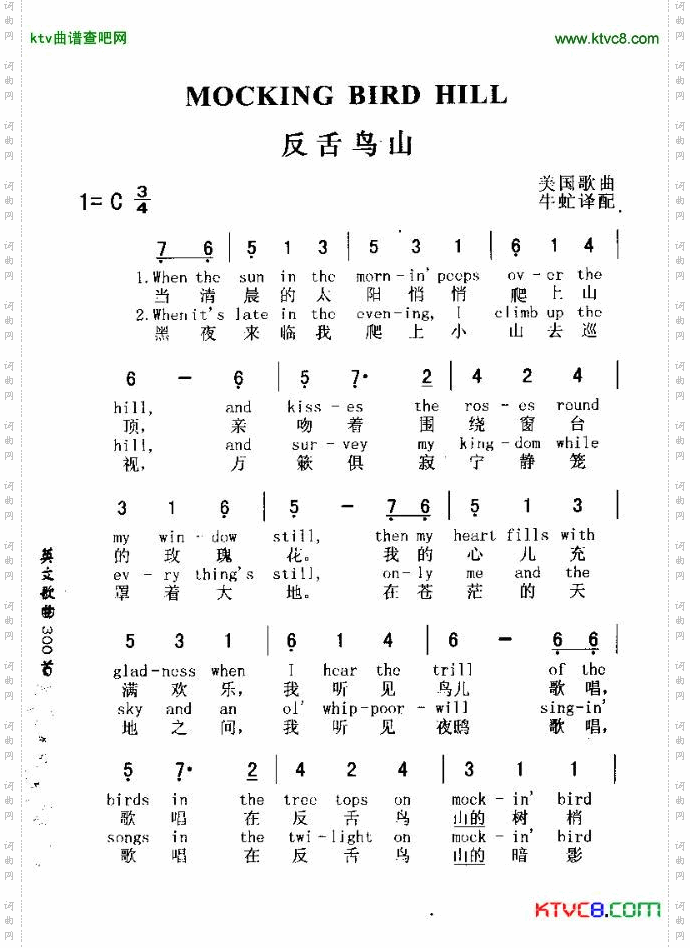 ktv曲谱查吧网
www.ktvc8.com
MOCKING BIRD HILL
反舌鸟山
1=C 3/4
美国歌曲
牛虻译配
7 6 | 5 1 3 | 5 3 1 | 6 1 4 |
1.When the sun in the morn-in' peeps ov-er the
当清晨的太阳悄悄爬上山
2.When it's late in the eve-ning, I climb up the
黑夜来临我爬上小山去巡
6 - 6 | 5 7· 2 | 4 2 4 |
hill, and kiss-es the ros-es round
顶，亲吻着围绕窗台
hill, and sur-vey my king-dom while
视，万籁俱寂宁静笼
3 1 6 | 5 - 7 6 | 5 1 3 |
my win-dow still, then my heart fills with
的玫瑰花。我的心儿充
ev-ry thing's still, on-ly me and the
罩着大地。在苍茫的天
英文歌曲300首
5 3 1 | 6 1 4 | 6 - 6 6 |
glad-ness when I hear the trill of the
满欢乐，我听见鸟儿歌唱，
sky and an ol' whip-poor-will sing-in'
地之间，我听见夜鸥歌唱，
5 7· 2 | 4 2 4 | 3 1 1 |
birds in the tree tops on mock-in' bird
歌唱在反舌鸟山的树梢
songs in the twi-light on mock-in' bird
歌唱在反舌鸟山的暗影
KTVC8.COM
词曲网